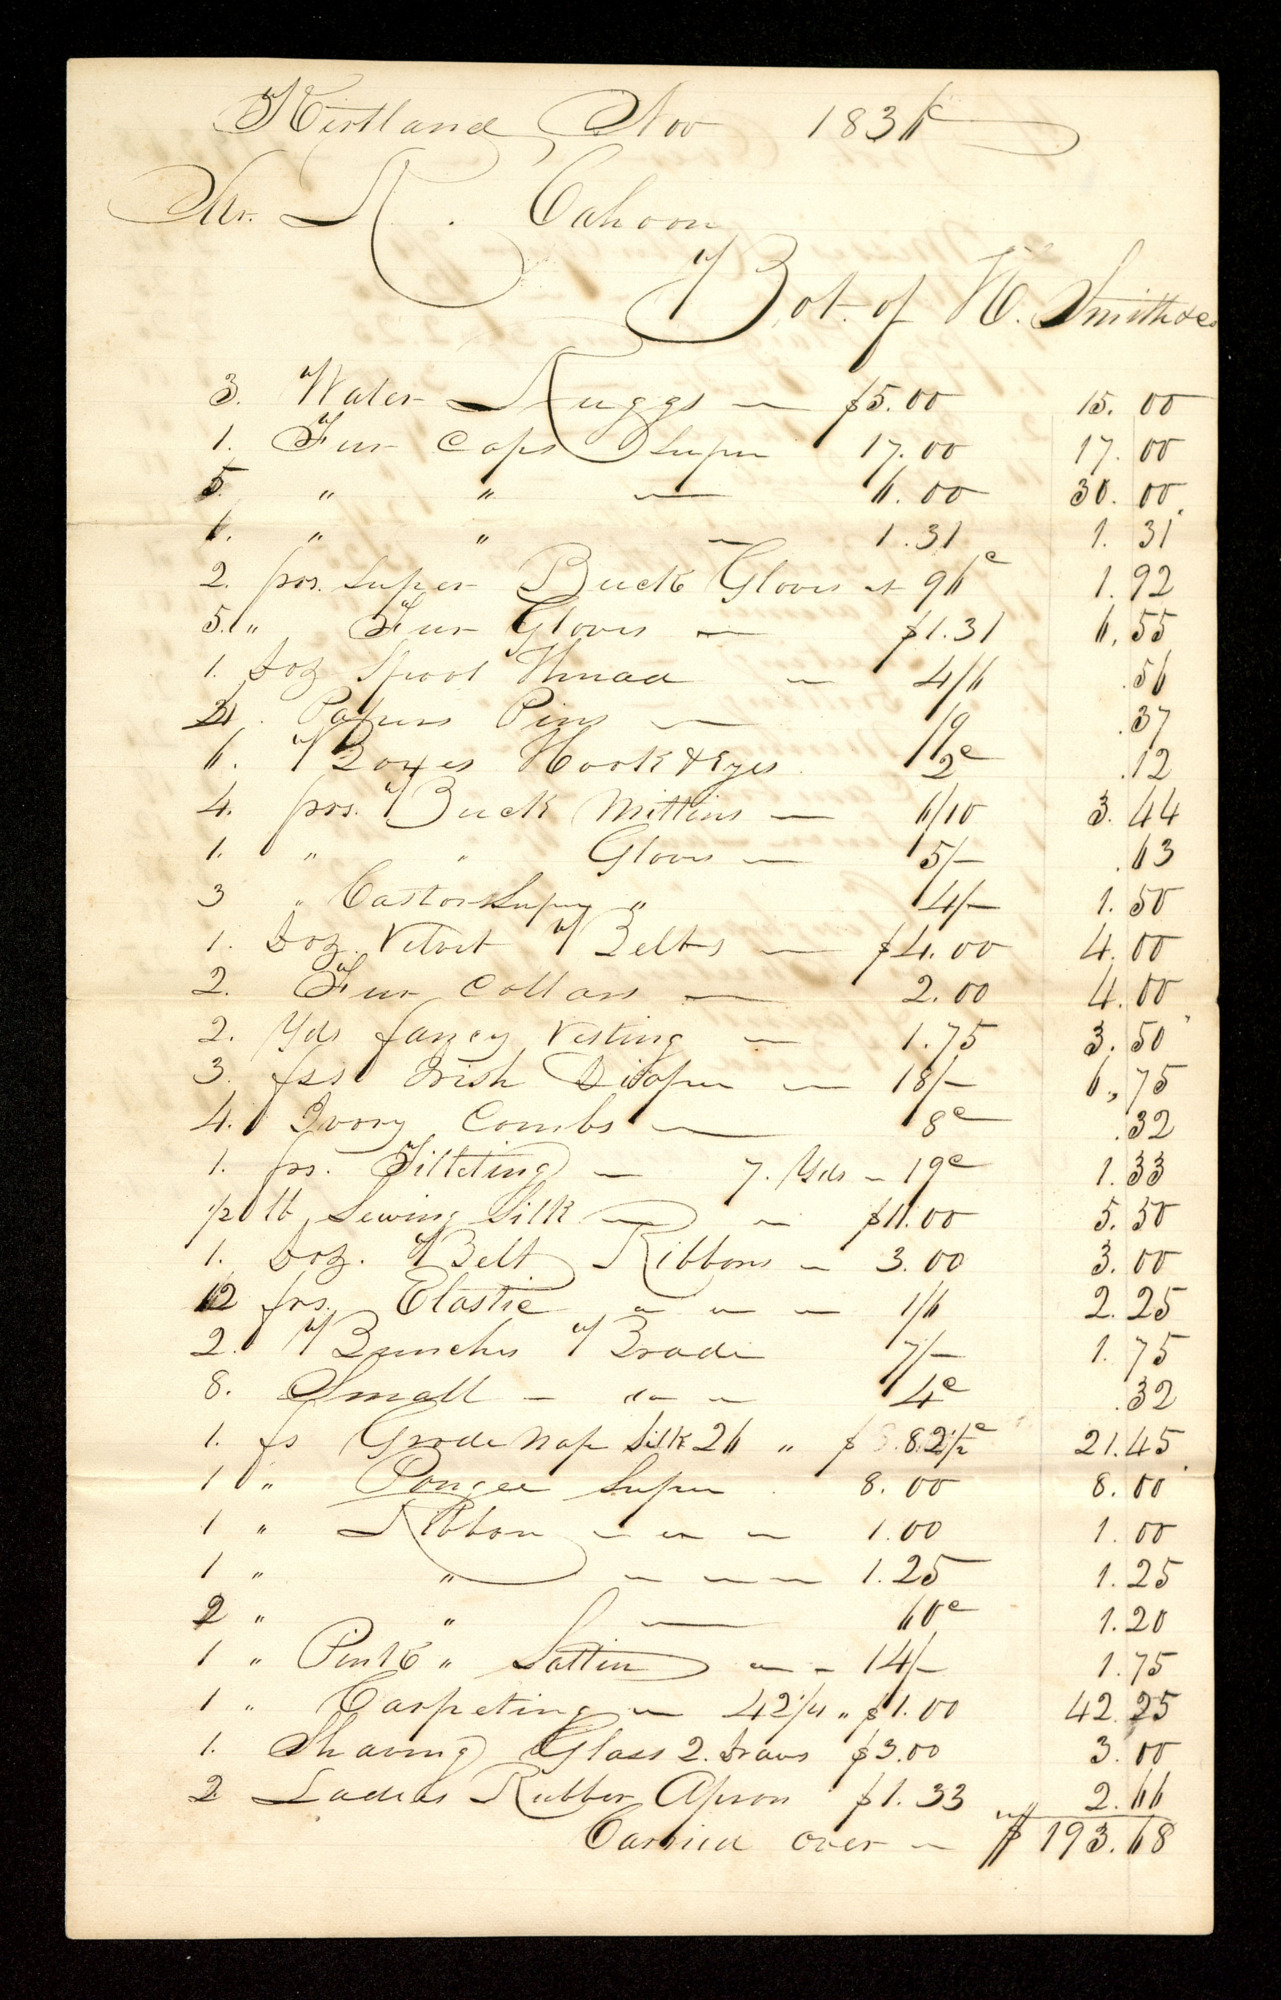 Kirtland Nov 1836
Mr. R. Cahoon
Bot. of H. Smith & Co
3. Water Ruggs — $5.00 15.00
1. Fur Caps Super 17.00 17.00
5. " " — 6.00 30.00
1. " " — 1.31 1.31
2. prs. Super Buck Gloves at 96c 1.92
5. " Fur Gloves — $1.31 6.55
1. Doz Spool Thread — 4/6 .56
4. Papers Pins — /9 .37
6. Boxes Hook & Eyes. 2c .12
4. prs. Buck Mittins — 6/10 3.44
1. " " Gloves — 5/– .63
3 " Castor Super " 4/– 1.50
1. Doz. Velvet Belts — $4.00 4.00
2. Fur Collars — 2.00 4.00
2. Yds fancy Vesting — 1.75 3.50
3. pss Irish Diaper — 18/– 6.75
4. Ivory Combs — 8c .32
1. ps. — 7. Yds – 19c 1.33
lb Sewing Silk — — $11.00 5.50
1. Doz. Belt Ribbons — 3.00 3.00
12 prs. Elastic — — — 1/6 2.25
2. Bunches Brade 7/– 1.75
8. Small — do — 4c .32
1. ps Grode Nap Silk 26 " $ .82½c 21.45
1 " Pongee Super 8.00 8.00
1 " Ribbon — — — 1.00 1.00
1 " " — — — 1.25 1.25
2 " " — 60c 1.20
1 " Pink " Sattin — – 14/– 1.75
1 " Carpeting — 42¼ " $1.00 42.25
1. Shaving Glass 2. Draws $3.00 3.00
2 Ladies Rubber Apron $1.33 2.66
Carried over — $193.68